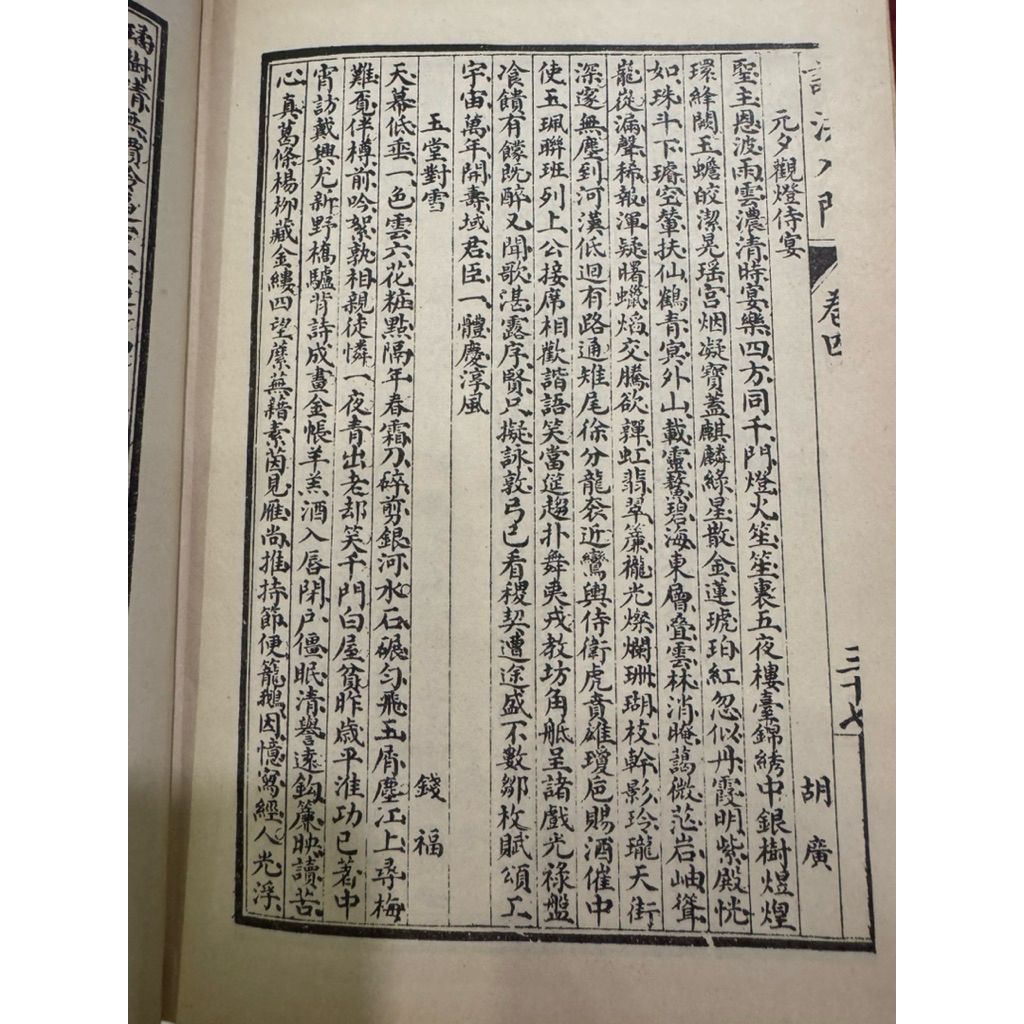 詩法入門 卷四 三十七
元夕觀燈侍宴 胡廣
聖主恩波雨雲濃清時宴樂四方同千門燈火笙笙裏五夜樓臺錦綉中銀樹煜煌
環絳闕玉蟾皎潔晃瑶宫烟凝寶蓋麒麟綠星散金蓮琥珀紅忽似丹霞明紫殿恍
如珠斗下璿空輦扶仙鶴青冥外山載靈鰲碧海東層叠雲林消腌藹微茫岩岫聳
龍從漏聲稀報渾疑曙蠟焰交騰欲亸虹翡翠簾櫳光燦爛珊瑚枝幹影玲瓏天街
深邃無塵到河漢低迴有路通雉尾徐分龍衮近鸞輿侍衛虎賁雄瓊卮賜酒催中
使玉珮聯班列上公接席相歡諧語笑當筵趨扑舞夷戎教坊角觝呈諸戲光禄盤
飡饋有饛既醉又聞歌湛露序賢只擬詠敦弓已看稷契遭途盛不數鄒枚賦頌工
宇宙萬年開壽域君臣一體慶淳風
玉堂對雪 錢福
天幕低垂一色雲六花粧點隔年春霜刀碎剪銀河水石碾勻飛玉屑塵江上尋梅
難覓伴樽前吟絮孰相親徒憐一夜青出老却笑千門白屋貧昨歲平淮功已著中
宵訪戴興尤新野橋驢背詩成畫金帳羊羔酒入唇閉户僵眠清譽遠鈎簾映讀苦
心真葛條楊柳藏金縷四望蘼蕪藉素茵見雁尚推持節便籠鵝因憶寫經人光浮